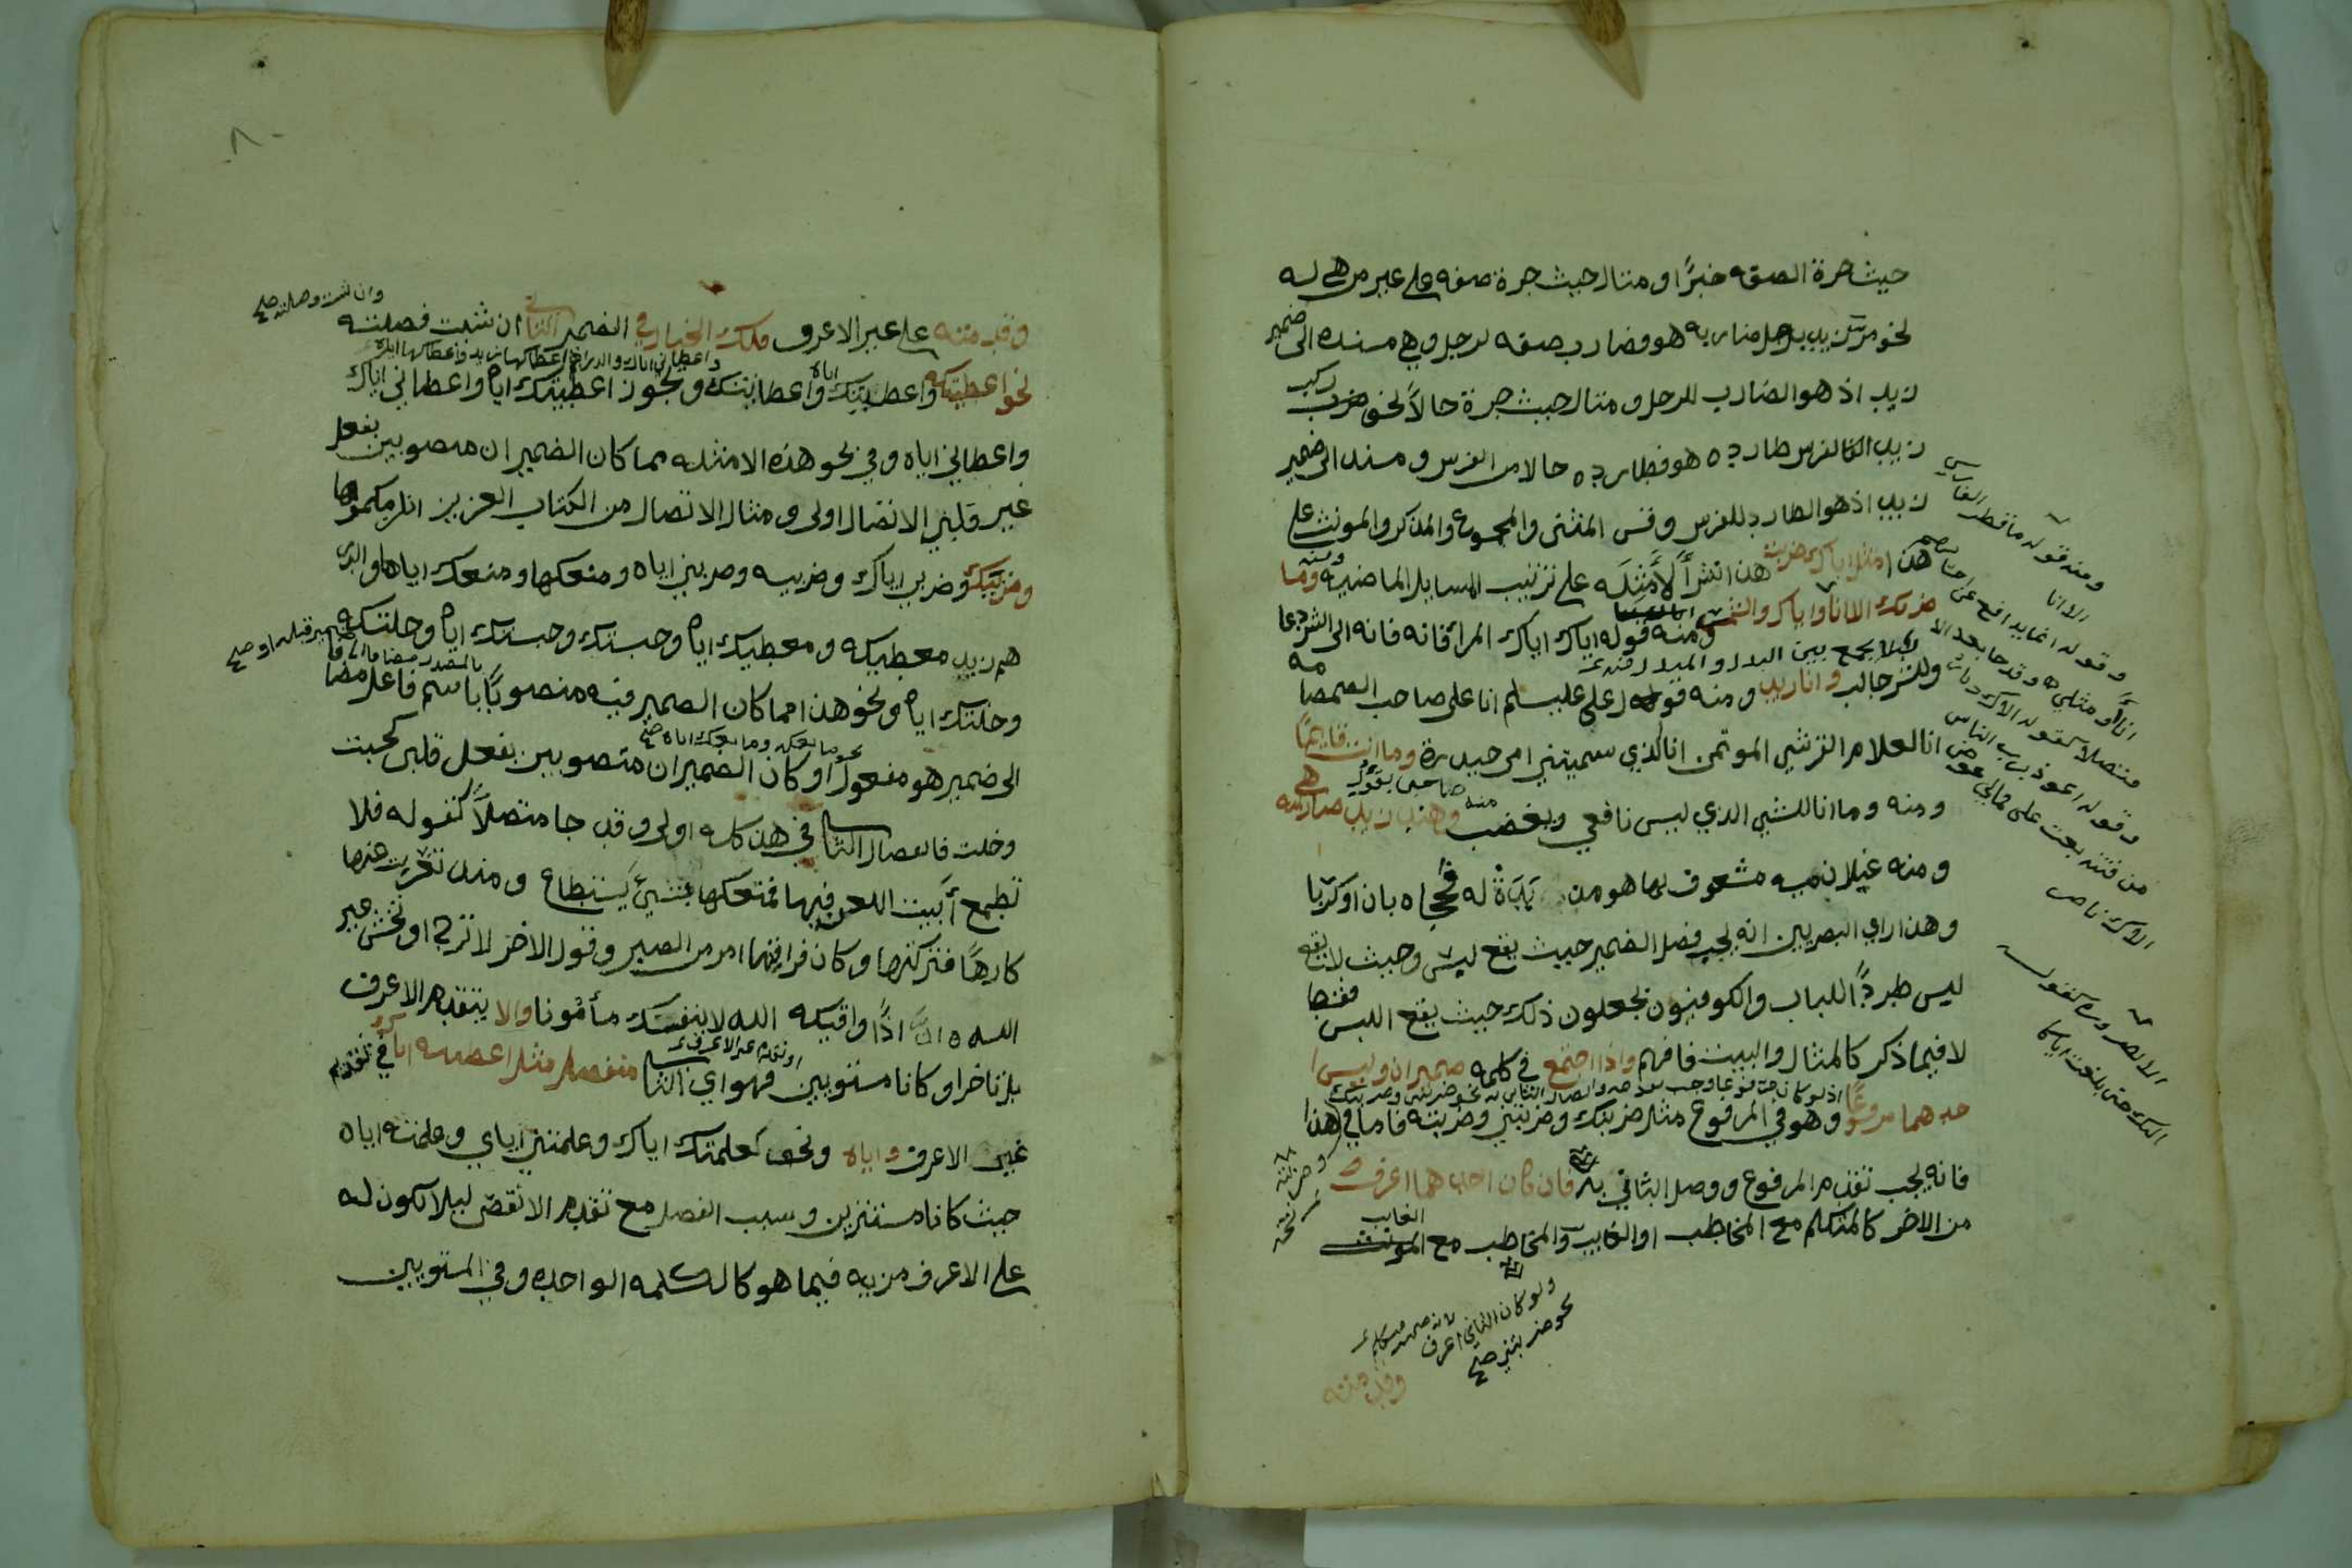 حيث جرة الصفه خبرًا ومثال حيث جرة صفه على غير من هي له
نحو مررت بزيد برجل ضاربه هو فضارب صفه لرجل وهي مسنده الى ضمير
زيد اذ هو الضارب للرجل ومثال حيث جرة حالاً نحو ركب
زيد الفرس طارده هو فطارده حالا من الفرس ومسند الى ضمير
زيد اذ هو الطارد للفرس وقس المثنى والمجموع والمذكر والمونث على
هذا مثل اياك ضربت هذا نشرًا لأمثله على ترتيب المسايل الماضيه ومنه وما
ضربك الا انا واياك والشر ومنه قوله اياك اياك المراء فانه فانه الى الشر دعا
وللشر جالب وانا زيد ومنه قول علي عليسلم انا علي صاحب الصمصامه
انا الغلام القرشي الموتمن انا الذي سمتني امي حيدرة وما انت قايمًا
ومنه وما انا للشيي الذي ليس نافعي ويغضب منه صاحبي بقوول وهند زيد ضاربته هي
ومنه غيلان ميه مشعوف بها هو من بَدَتْ له فحجاه بان او كربا
وهذا راي البصريين انه يجب فصل الضمير حيث يقع لبس وحيث لا يقع
ليس طردًا للباب والكوفيون يجعلون ذلك حيث يقع اللبس فقط
لا فيما ذكر كالمثال والبيت فافهم واذا اجتمع في كلمه ضميران وليس ا
حدهما مرفوعًا وهو في المرفوع مثل ضربتك وضربتني وضربته فاما في هذا
فانه يجب تقدم المرفوع ووصل الثاني به فان كان احدهما اعرف
من الاخر كالمتكلم مع المخاطب او الغايب والمخاطب مع الغايب
ولو كان الثاني اعرف
لانه ضمير متكلم
نحو ضربتني صح
وقدمته
ومنه قوله ما قطر الفارس
الا انا
وقوله انما يدافع عن احسابهم
انا او مثلي وقد جا بعد الا
متصلا كقوله الاك ديار
وقوله اعوذ برب الناس
من فتنه بغت علي فمالي عوض
الاك ناصر
وكقوله
اليك حتى بلغت اياكا
وقدمته على غير الاعرف فلك الخيار في الضمير الثاني ان شيت فصلته
وان شيت وصلته صح
نحو اعطيتكه واعطيتك اياه واعطانيك ويجوز اعطيتك اياه واعطاني اياك
واعطاني اياه وفي نحو هذه الامثله مما كان الضميران منصوبين بفعل
غير قلبي الاتصال اولى ومثال الاتصال من الكتاب العزيز انلزمكموها
وضربيك وضربي اياك وضربيه وضربي اياه ومنعكها ومنعك اياها والدر
هم زيد معطيكه ومعطيك اياه وحسبتكه وحسبتك اياه وخلتكه
وخلتك اياه ونحو هذا مما كان الضمير فيه منصوبًا باسم فاعل مضا
الى ضمير هو مفعول او كان الضميران منصوبين بفعل قلبي كحسبت
وخلت فانفصال الثاني في هذا كله اولى وقد جا متصلاً كقوله فلا
تطمع أبيت اللعن فيها فمنعكها بشيئ يستطاع ومنه تعزيت عنها
كارهًا فتركتها وكان فراقيها امر من الصبر وقول الاخر لا ترج او تخش غير
الله ان اذًا واقيكه الله لا ينفسك مأمونا والا يتقدم الاعرف
بل تاخر او كانا مستويين فهو اي الثاني منفصل مثل اعطيته اياك في تقدم
غير الاعرف واياه ونحو كعلمتك اياك وعلمتني اياي وعلمته اياه
حيث كانا مستويين وسبب الفصل مع تقدم الانقص ليلا يكون له
على الاعرف مزيه فيما هو كالكلمه الواحده وفي المستويين